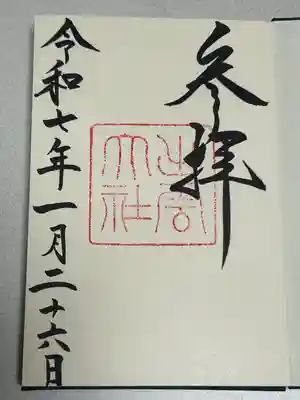 参拝
出雲大社
令和七年一月二十六日